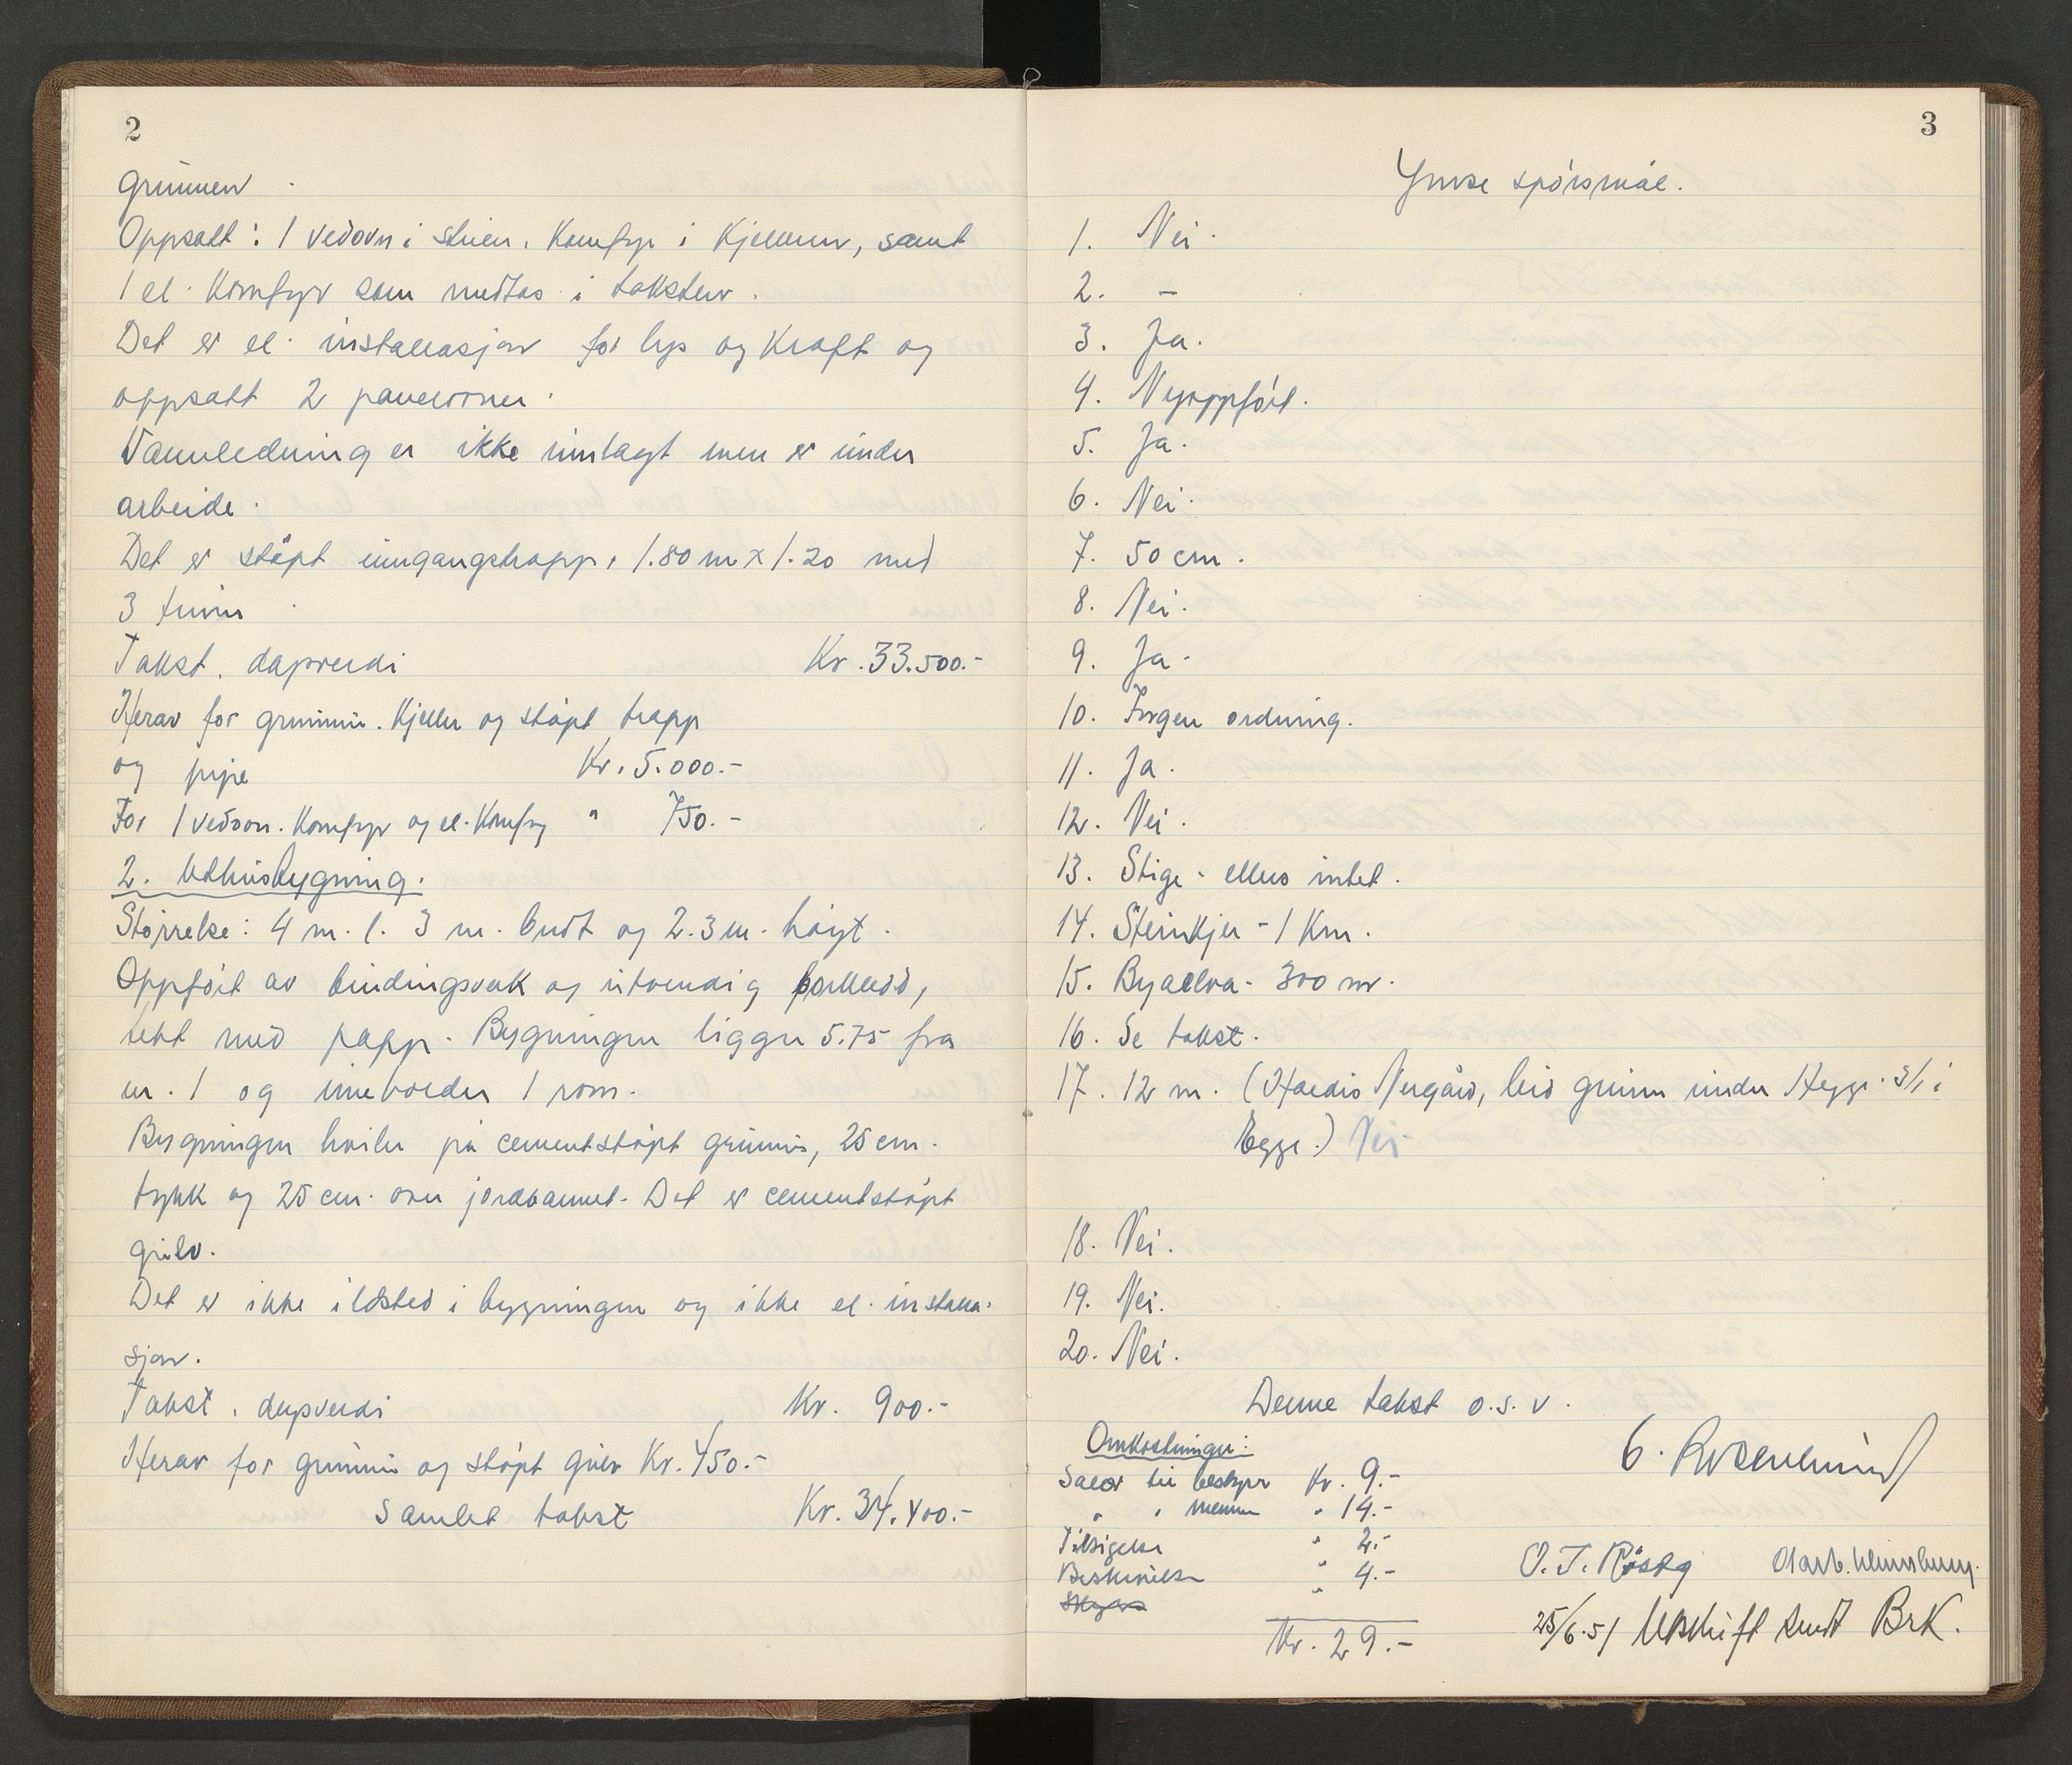 2
grunnen.
Oppsatt: 1 vedovn i stuen, Komfyr i Kjelleren, samt
1 el. Komfyr som medtas i taksten.
Det er el. installasjon for lys og Kraft og
oppsatt 2 panelovner.
Vannledning er ikke innlagt men er under
arbeide.
Det er støpt inngangstrapp, 1.80 m x 1.20 med
3 trinn.
Takst, dagverdi Kr. 33.500.-
Herav for grunnmur. Kjeller og støpt trapp
og pipe Kr. 5.000.-
For 1 vedovn. Komfyr og el. Komfyr " 750.-
2. Uthusbygning.
Størrelse: 4 m. l. 3 m. bredt og 2.3 m. høyt.
Oppført av bindingsverk og utvendig borkledd,
tekt med papp. Bygningen ligger 5.75 fra
nr. 1 og inneholder 1 rom.
Bygningen hviler på cementstøpt grunnm, 25 cm.
tykk og 25 cm. over jordbannet. Det er cementstøpt
gulv.
Det er ikke ildsted i bygningen og ikke el. installa-
sjon.
Takst, dagverdi Kr. 900.-
Herav for grunnm og støpt gulv Kr. 450.-
Samlet takst Kr. 34.400.-
3
Ymse spørsmål.
1. Nei.
2. -
3. Ja.
4. Nyoppført.
5. Ja.
6. Nei.
7. 50 cm.
8. Nei.
9. Ja.
10. Ingen ordning.
11. Ja.
12. Nei.
13. Stige - ellers intet.
14. Steinkjer - 1 Km.
15. Byaelva - 300 m.
16. Se takst.
17. 12 m. (Haldis Nergård, leid grunn under Hegge 3/1 i
Egge.) Nei
18. Nei.
19. Nei.
20. Nei.
Denne takst o.s.v.
Omkostninger:
Salær til bestyrer Kr. 9.-
" " mennene " 14.-
Tilsigelse " 2.-
Beskrivelse " 4.-
Skyss "
Kr. 29.-
G. Rosenlund
O. T. Røstg
25/6.51 Utskrift sendt BrK.